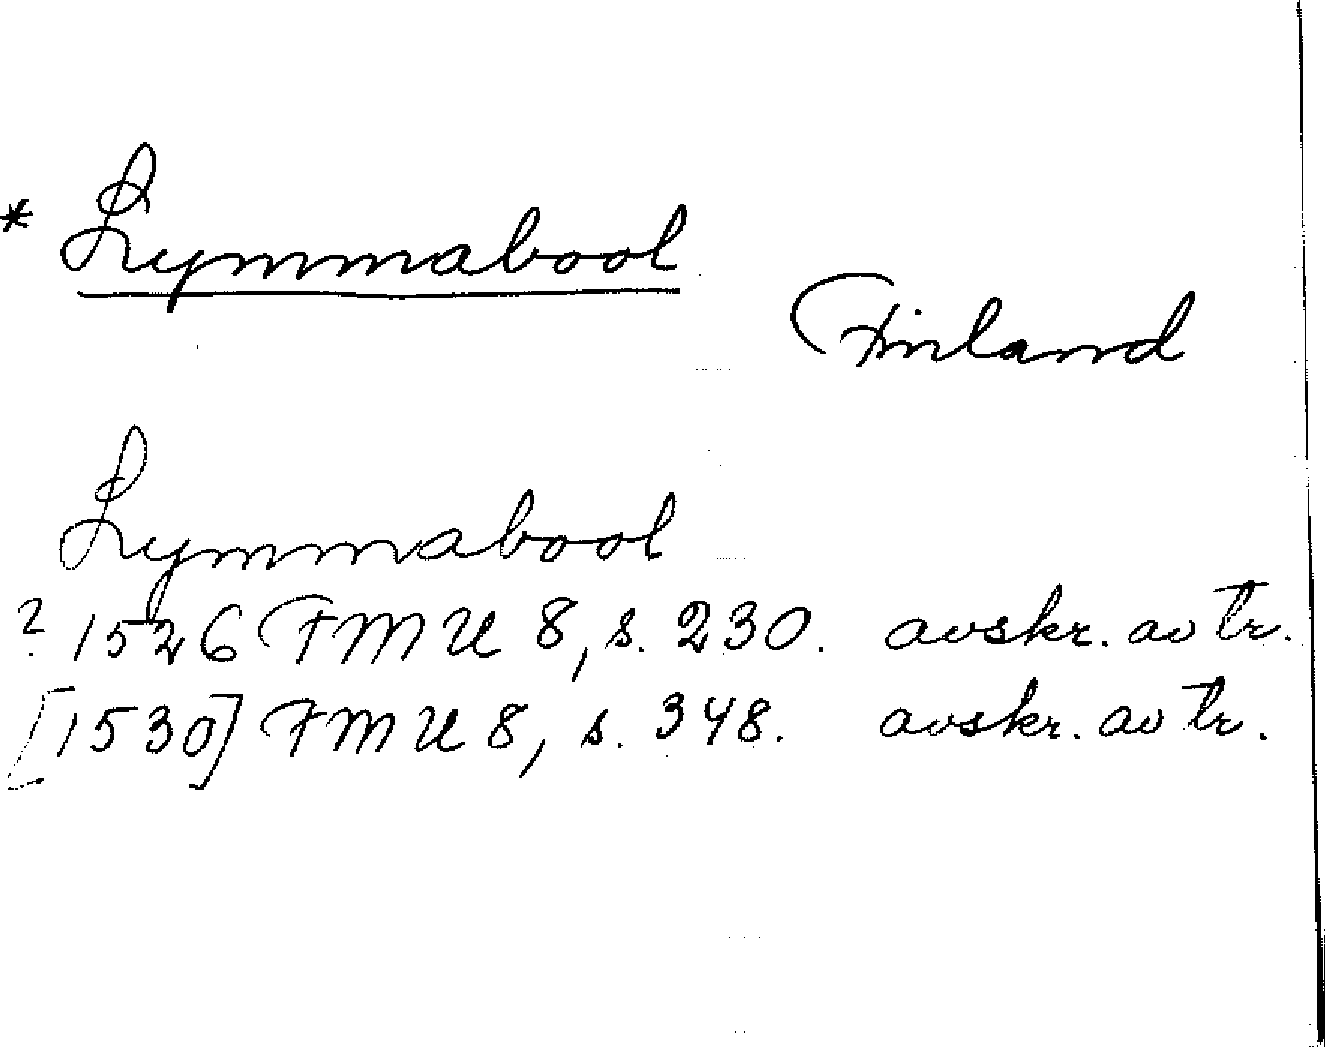 * Lymmabool
Finland
Lymmabool
? 1526 FMU 8, s. 230. avskr. av tr.
[1530] FMU 8, s. 348. avskr. av tr.